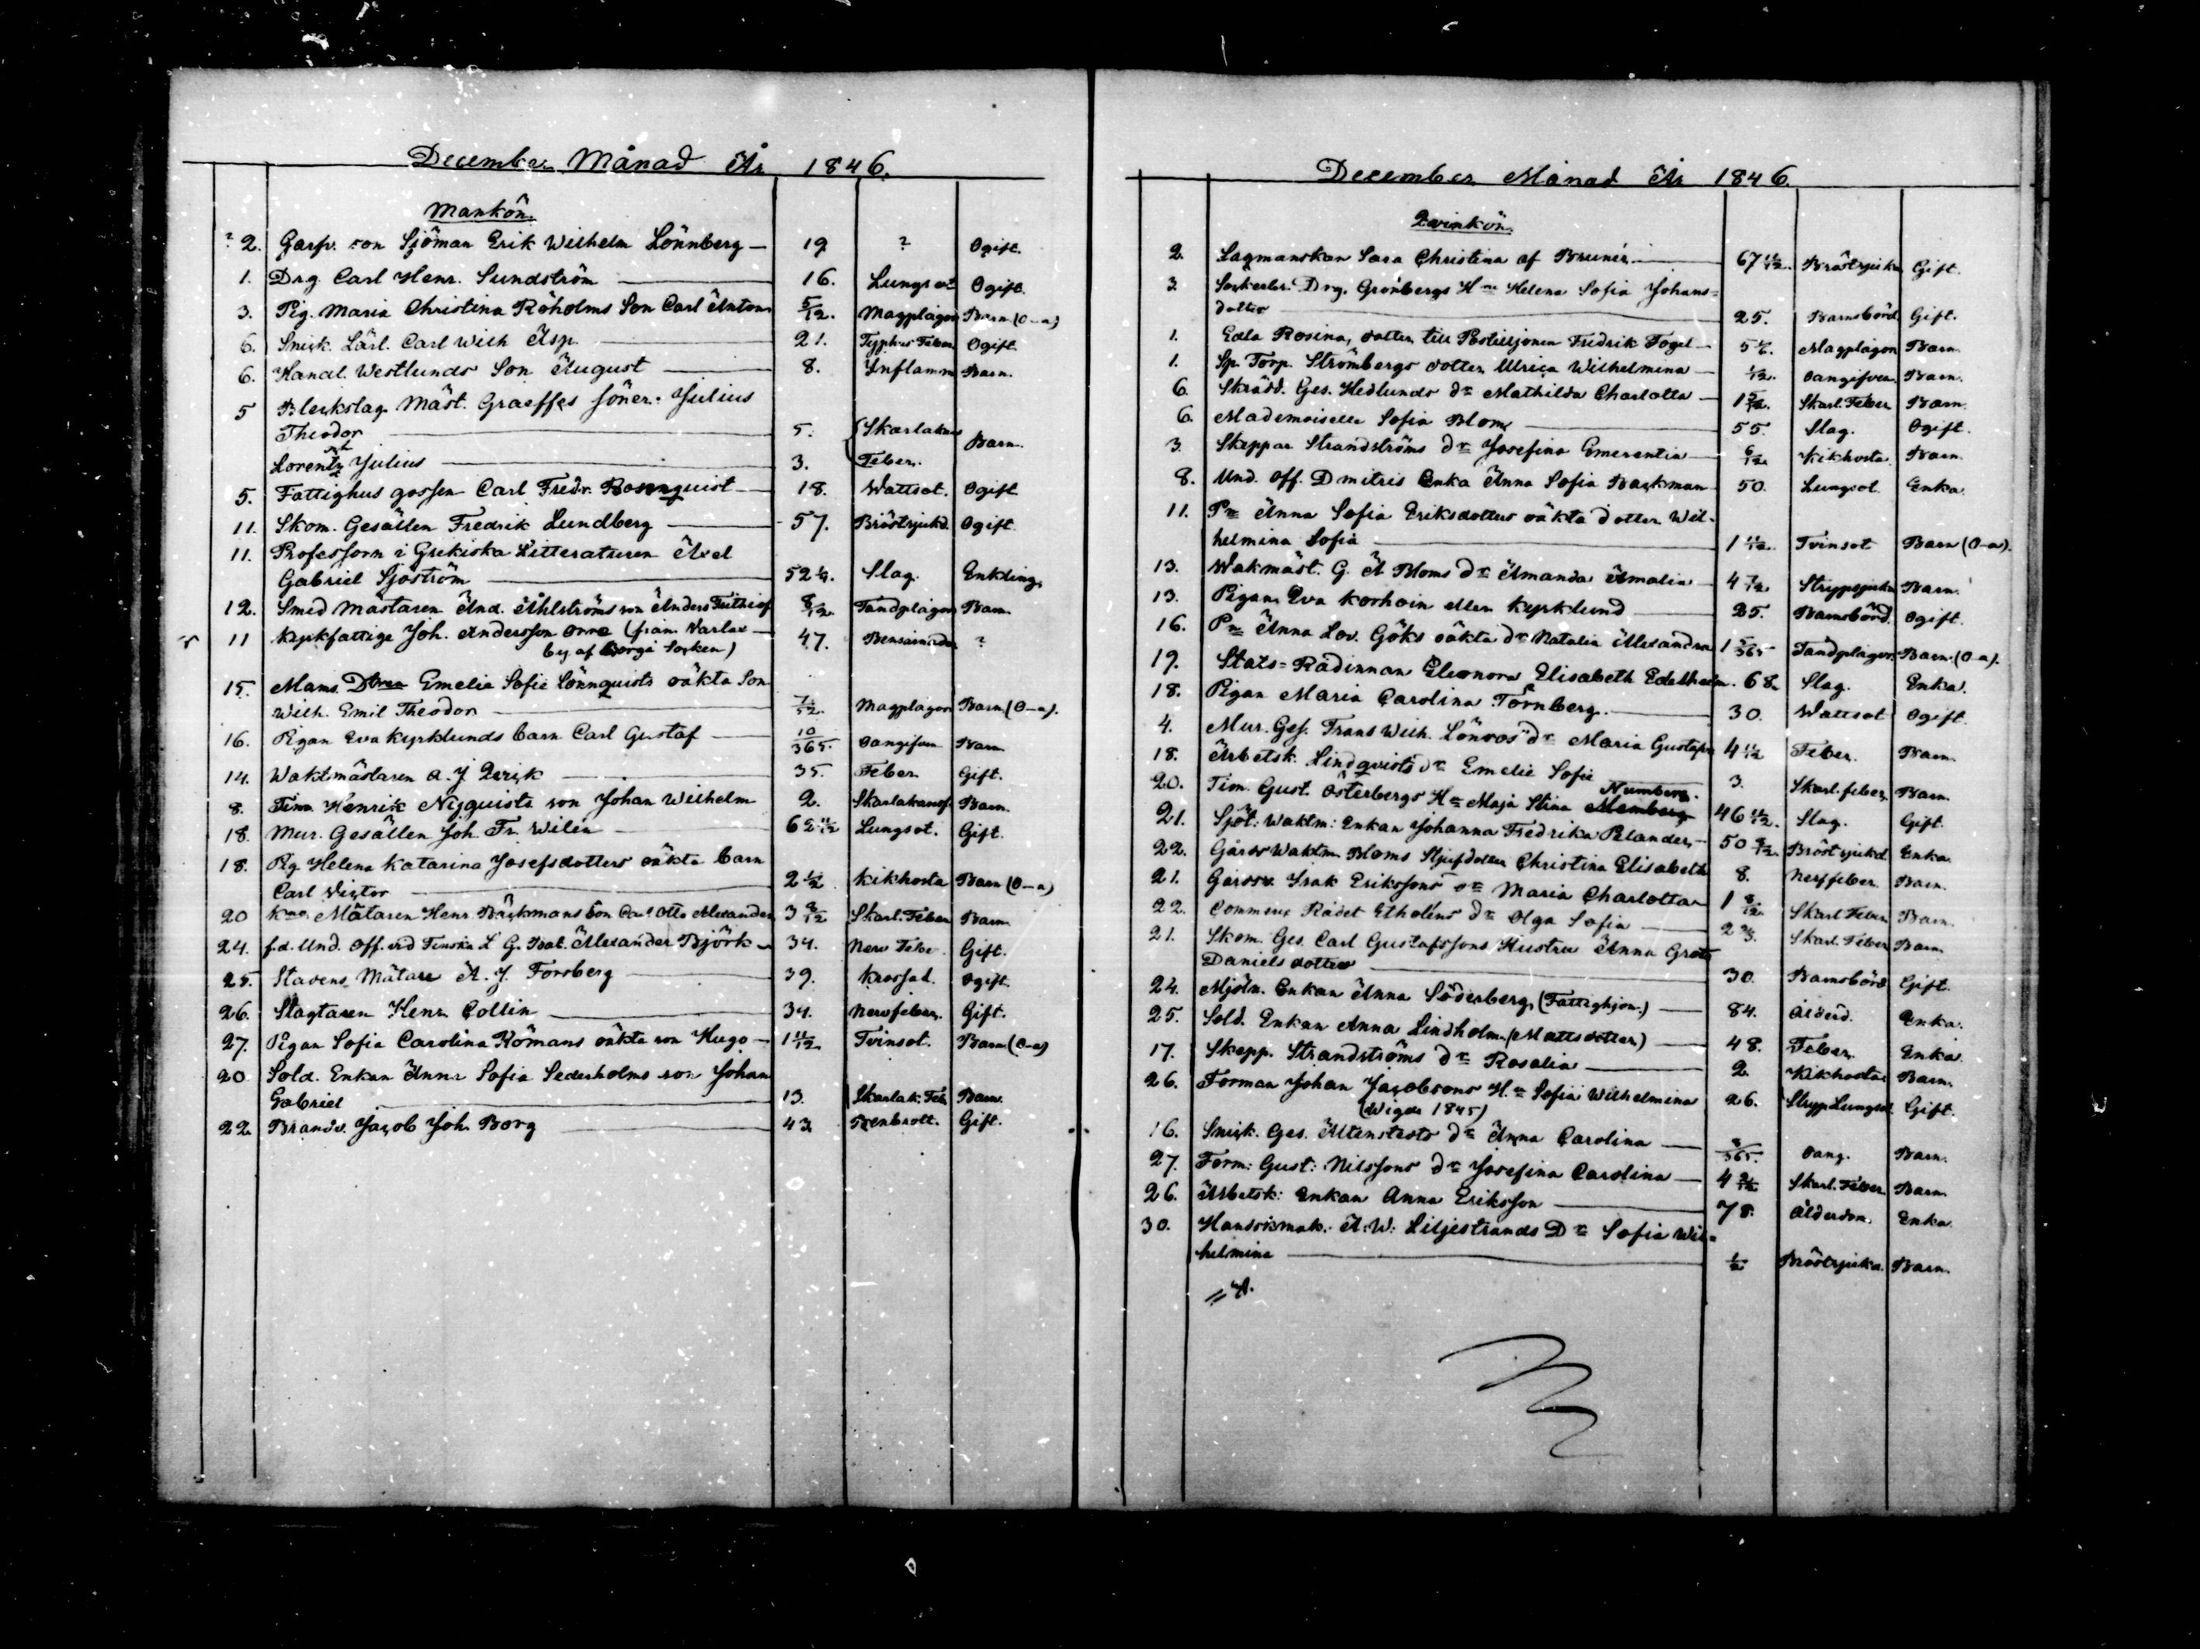 December Månad År 1846.
Mankön.
? 2. Garfv. son Sjöman Erik Wilhelm Lönnberg — 19 ? Ogift.
1. Drg. Carl Henr. Sundström — 16. Lungsot Ogift.
3. Pig. Maria Christina Röholms Son Carl Anton 5/12. Magplågor Barn (O-a)
6. Snick. Lärl. Carl Wilh Asp — 21. Typhus Feber Ogift
6. Handl. Westlunds Son August — 8. Inflamm Barn.
5 Bleckslag. Mäst. Graeffes söner. Julius
Theodor — 5. Skarlakans Barn.
Lorentz Julius — 3. Feber.
5. Fattighus gossen Carl Fredr. Rosenquist — 18. Wattsot. Ogift
11. Skom. Gesällen Fredrik Lundberg — 57. Bröstsjukd. Ogift
11. Professorn i Grekiska Litteraturen Axel
Gabriel Sjöström — 52 Slag. Enkling.
12. Smed Mästaren And. Ahlströms son Anders Frithiof 8/12. Tandplågor Barn
11 Kyrkfattige Joh. Andersson Orre (från Varlax — 47. ?
by af Borgå Socken)
15. Mams. Dorea Emelie Sofie Lönnquists oäkta Son
Wilh. Emil Theodor — 7/12. Magplågor Barn (O-a).
16. Pigan Eva Kyrklunds barn Carl Gustaf — 10/365. Oangifven Barn
14. Waktmästaren A. J. Qvick — 35. Feber Gift.
8. Tim Henrik Nyquists son Johan Wilhelm 2. Skarlakansf. Barn.
18. Mur. Gesällen Joh. Fr. Wilén — 62 11/12 Lungsot. Gift.
18. Pig Helena Katarina Josefsdotters oäkta barn
Carl Victor — 2 1/2 Kikhosta Barn (O-a)
20 Kno. Mätaren Henr. Bäckmans Son Carl Otto Alexander 3 Skarl. Feber Barn
24. f.d. Und. Off. vid Finska L. G. Bat. Alexander Björk — 34. Nerv Feber Gift.
25. Stavens Mätare A. J. Forsberg — 39. Krossad. Ogift.
26. Slagtaren Henr. Collin — 34. Nervfeber. Gift.
27. Pigan Sofia Carolina Römans oäkta son Hugo — 1 11/12 Tvinsot. Barn (O-a)
20 Sold. Enkan Anna Sofia Sederholms son Johan
Gabriel — 13. Skarlak. Feb. Barn.
22. Brandv. Jacob Joh. Borg — 43 Benbrott. Gift.
December Månad År 1846.
Qvinkön.
2. Lagmanskan Sara Christina af Brunér — 67 11/12. Bröstsjuka Gift.
3. Sockerbr. Drg. Grönbergs H:u Helena Sofia Johans=
dotter — 25. Barnsbörd Gift.
1. Edla Rosina, dotter till Postiljonen Fredrik Fogel — 5 Magplågor Barn.
1. Sp. Torp. Strömbergs dotter Ulrica Wilhelmina — 1/12. Oangifven. Barn.
6. Skrädd. Ges. Hedlunds d:r Mathilda Charlotta — 1 Skarl. Feber Barn.
6. Mademoiselle Sofia Blom — 55 Slag. Ogift.
3. Skeppar Strandströms d:r Josefina Emerentia — 6/12 Kikhosta. Barn.
8. Und. Off. Dmitris Enka Anna Sofia Backman 50. Lungsot Enka.
11. P:n Anna Sofia Eriksdotters oäkta dotter Wil-
helmina Sofia — 1 11/12. Tvinsot Barn (O-a).
13. Wakmäst. G. A. Bloms d:r Amanda Amalia — 4 7/12. Strypsjuka Barn.
13. Pigan Eva Korhoin eller Kyrklund — 25. Barnsbörd. Ogift.
16. P:n Anna Lov. Göks oäkta d:r Natalia Alexandra 1 5/365 Tandplågor. Barn. (O-a).
19. Stats=Rådinnan Eleonora Elisabeth Edelheim. 68. Slag. Enka.
18. Pigan Maria Carolina Törnberg. — 30. Wattsot Ogift
4. Mur. Ges. Frans Wilh. Lönroos d:r Maria Gustafva 4 1/2 Feber. Barn.
18. Arbetsk. Lindqvists d:r Emelie Sofie — 3. Skarl. feber. Barn.
20. Tim. Gust. Österbergs H:u Maja Stina Memberg Numberg. 46 11/12. Slag. Gift.
21. Sjöt: Waktm: Enkan Johanna Fredrika Pelander — 50 Bröstsjukd Enka.
22. Gårds Waktm. Bloms Stjufdotter Christina Elisabeth 8. Nerffeber. Barn.
21. Gårdsv. Isak Erikssons d:r Maria Charlotta 1 8/12. Skarl Feber. Barn.
22. Commerse Rådet Etholéns d:r Olga Sofia — 2 Skarl. Feber Barn.
21. Skom. Ges. Carl Gustafssons Hustru Anna Greta
Daniels dotter — 30. Barnsbörd Gift.
24. Mjöln. Enkan Anna Söderberg. (Fattighjon.) — 84. Ålderd. Enka.
25. Sold. Enkan Anna Lindholm (Mattsdotter) — 48. Feber. Enka.
17. Skepp. Strandströms d:r Rosalia — 2. Kikhosta Barn.
26. Forman Johan Jacobsons H:u Sofia Wilhelmina 26. Stryp Lungsot. Gift.
(Wigde 1845)
16. Snick. Ges. Altenstedts d:r Anna Carolina — 8/365. Oang. Barn.
27. Form: Gust: Nilssons d:r Josefina Carolina — 4 Skarl. Feber. Barn.
26. Arbetsk: Enkan Anna Eriksson — 78. Ålderdom. Enka.
30. Handskmak. A: W: Liljestrands D:r Sofia Wil=
helmina — 1/2 Bröstsjuka. Barn.